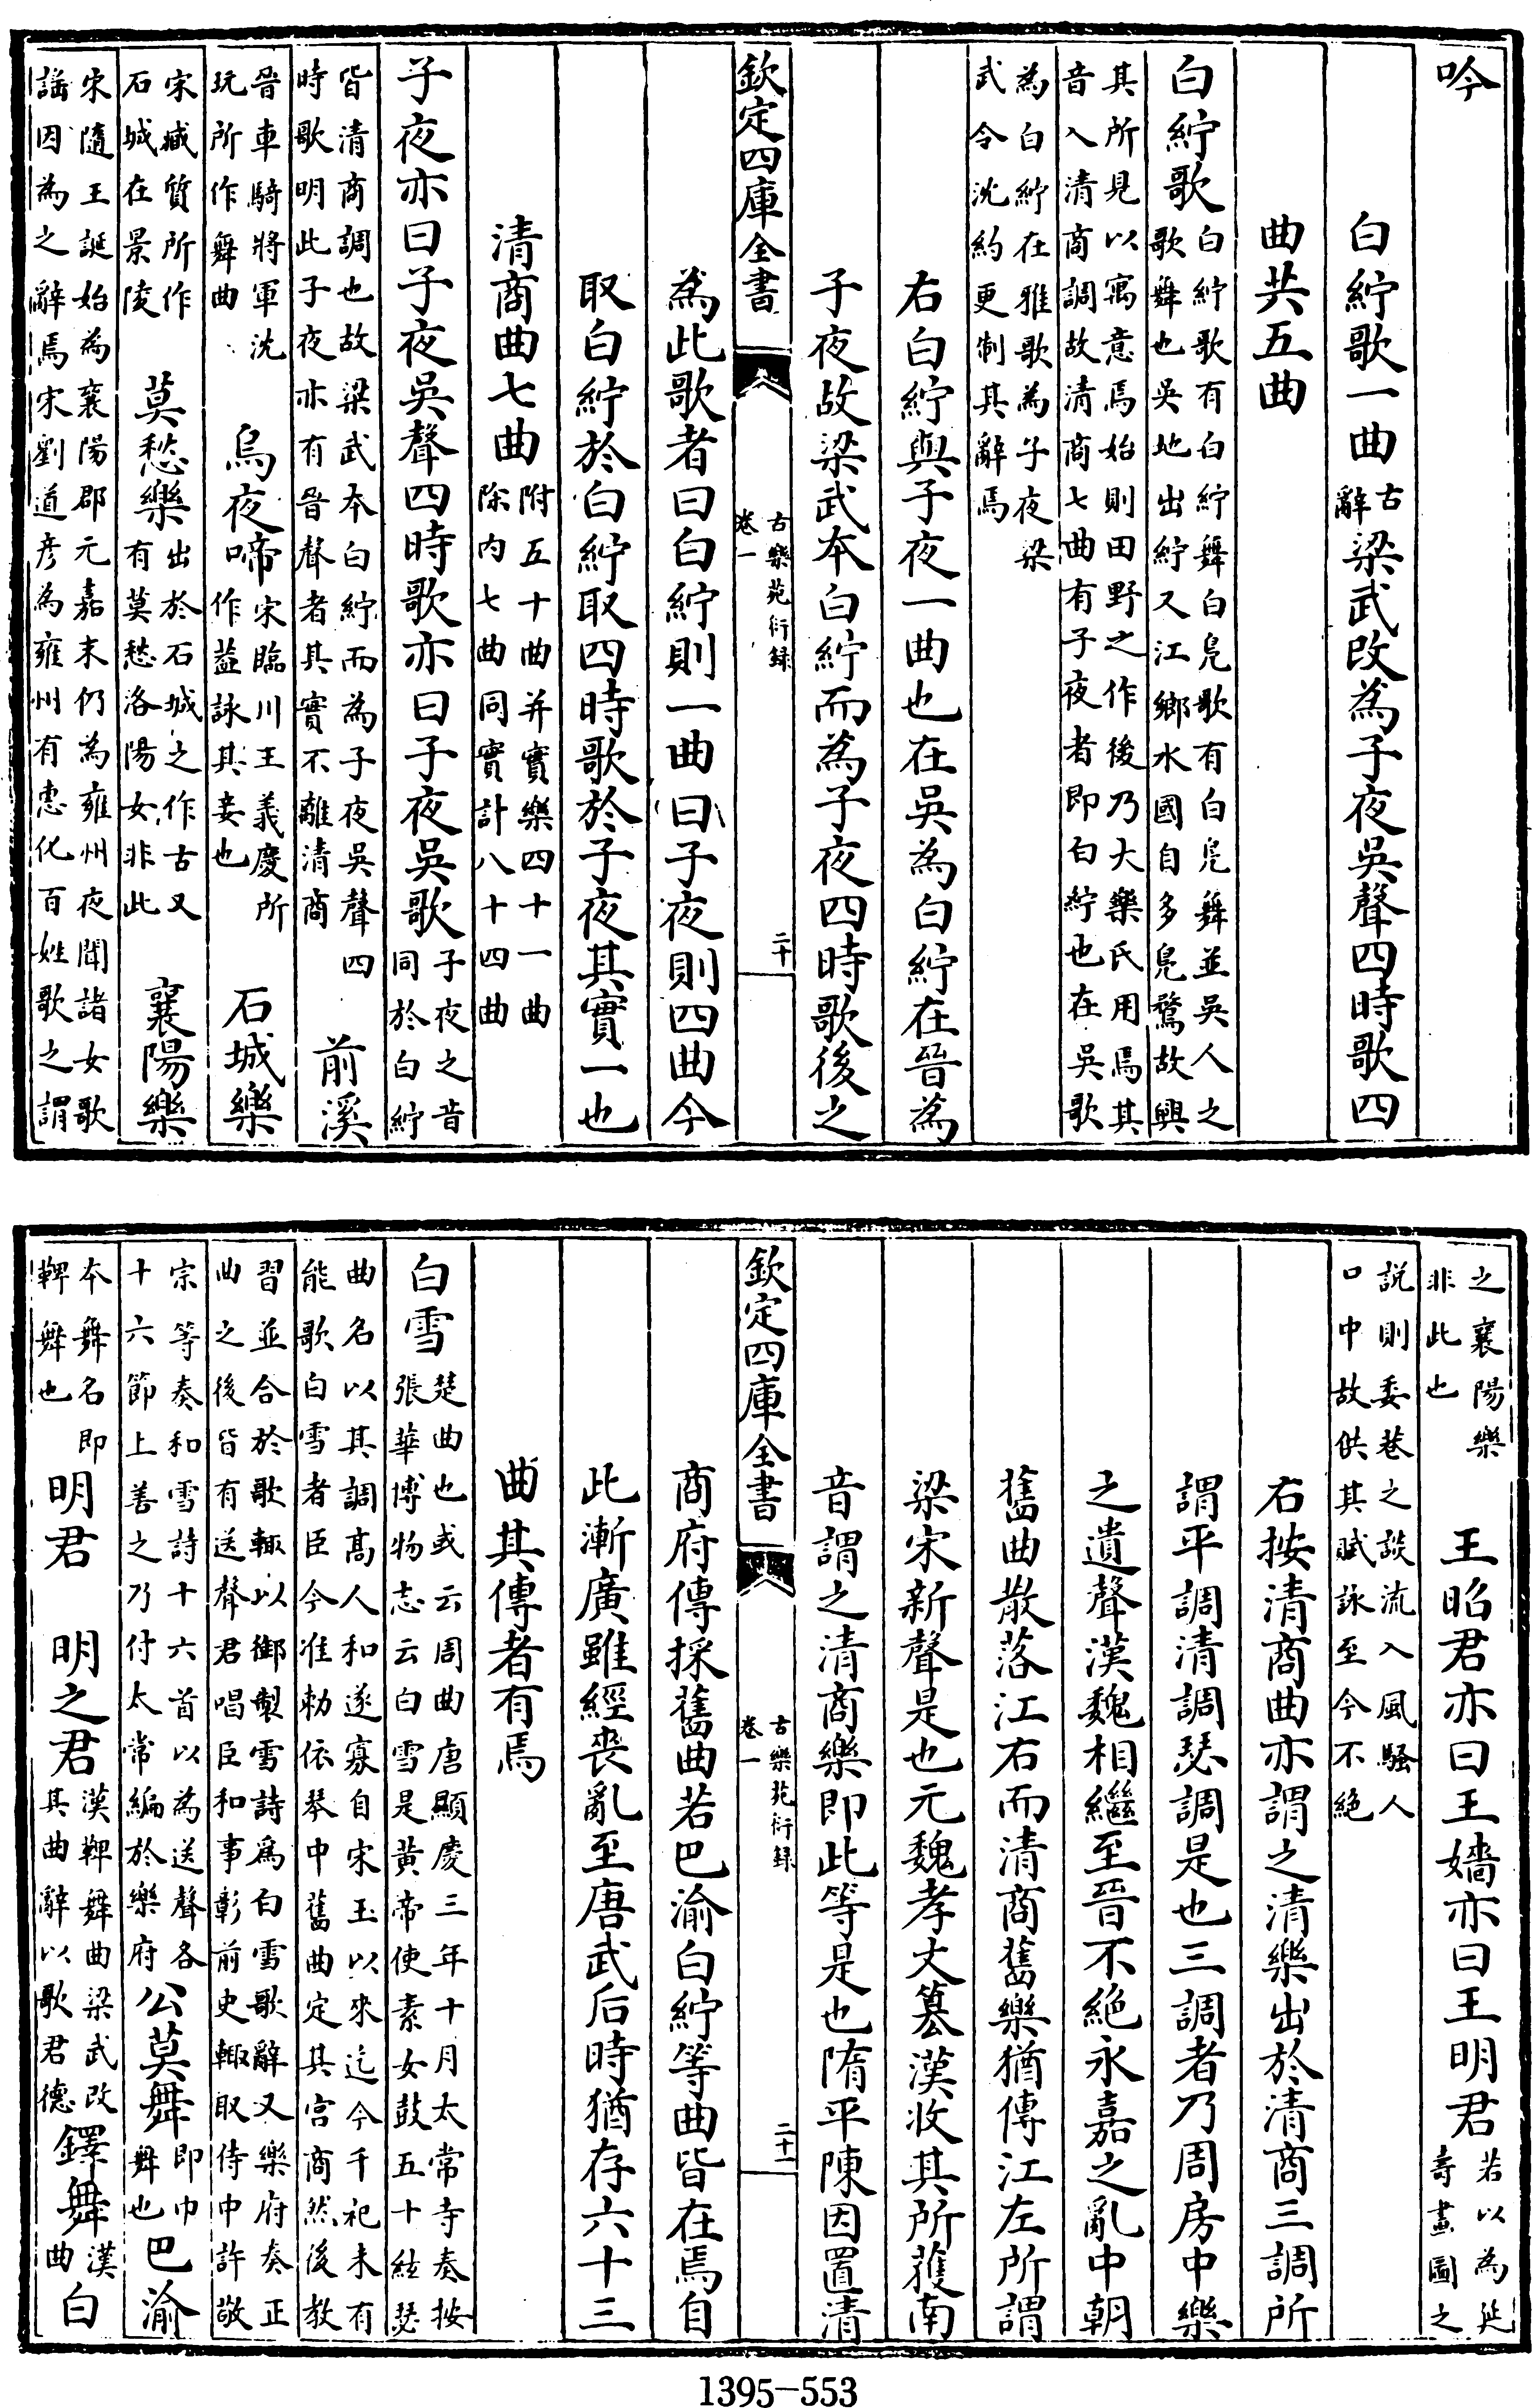 吟
白紵歌一曲古辭梁武改為子夜吳聲四時歌四
曲共五曲
白紵歌白紵歌有白紵舞白鳧歌有白鳧舞並吳人之
歌舞也吳地出紵又江鄉水國自多鳧鶩故興
其所見以寓意焉始則田野之作後乃大樂氏用焉其
音入清商調故清商七曲有子夜者即白紵也在吳歌
為白紵在雅歌為子夜梁
武令沈約更制其辭焉
右白紵與子夜一曲也在吳為白紵在晉為
子夜故梁武本白紵而為子夜四時歌後之
欽定四庫全書
古樂苑衍錄
卷一
二十
為此歌者曰白紵則一曲曰子夜則四曲今
取白紵於白紵取四時歌於子夜其實一也
清商曲七曲附五十曲并實樂四十一曲
除内七曲同實計八十四曲
子夜亦曰子夜吳聲四時歌亦曰子夜吳歌子夜之音
同於白紵
皆清商調也故梁武本白紵而為子夜吳聲四
時歌明此子夜亦有晉聲者其實不離清商
前溪
晉車騎將軍沈
玩所作舞曲
烏夜啼宋臨川王義慶所
作葢詠其妾也
石城樂
宋臧質所作
石城在景陵
莫愁樂出於石城之作古又
有莫愁洛陽女非此
襄陽樂
宋隨王誕始為襄陽郡元嘉末仍為雍州夜聞諸女歌
謡因為之辭焉宋劉道彦為雍州有惠化百姓歌之謂
之襄陽樂
非此也
王昭君亦曰王嬙亦曰王明君若以為延
夀畫圖之
説則委巷之談流入風騷人
口中故供其賦詠至今不絶
右按清商曲亦謂之清樂出於清商三調所
謂平調清調瑟調是也三調者乃周房中樂
之遺聲漢魏相繼至晉不絶永嘉之亂中朝
舊曲散落江右而清商舊樂猶傳江左所謂
梁宋新聲是也元魏孝文簒漢收其所獲南
音謂之清商樂即此等是也隋平陳因置清
欽定四庫全書
古樂苑衍錄
卷一
二十一
商府傳採舊曲若巴渝白紵等曲皆在焉自
此漸廣雖經喪亂至唐武后時猶存六十三
曲其傳者有焉
白雪楚曲也或云周曲唐顯慶三年十月太常寺奏按
張華博物志云白雪是黄帝使素女鼓五十絃瑟
曲名以其調髙人和遂寡自宋玉以來迄今千祀未有
能歌白雪者臣今准勅依琴中舊曲定其宫商然後教
習並合於歌輙以御製雪詩爲白雪歌辭又樂府奏正
曲之後皆有送聲君唱臣和事彰前史輙取侍中許敬
宗等奏和雪詩十六首以為送聲各
十六節上善之乃付太常編於樂府
公莫舞即巾
舞也
巴渝
本舞名即
鞞舞也
明君
明之君漢鞞舞曲梁武改
其曲辭以歌君德
鐸舞漢
曲
白
1395-553